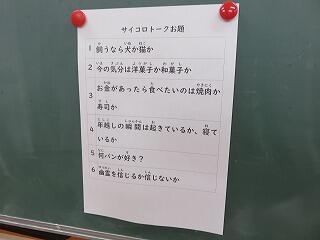 サイコロトークお題
1 飼うなら犬か猫か
2 今の気分は洋菓子か和菓子か
3 お金があったら食べたいのは焼肉か
寿司か
4 年越しの瞬間は起きているか、寝て
いるか
5 何パンが好き？
6 幽霊を信じるか信じないか